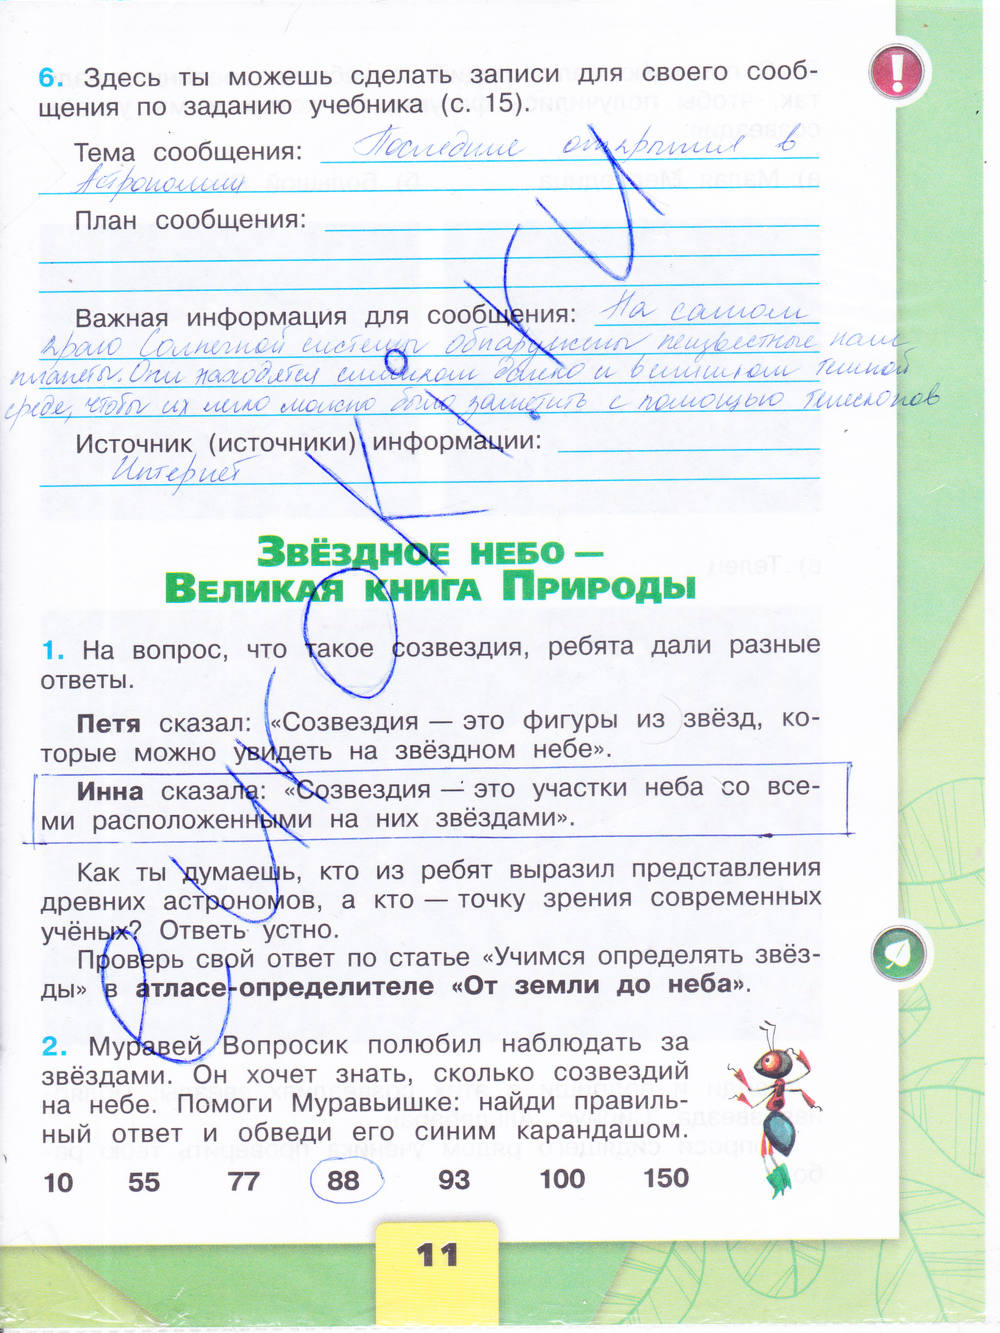 6. Здесь ты можешь сделать записи для своего сооб-
щения по заданию учебника (с. 15).
Тема сообщения: Последние открытия в
Астрономии
План сообщения:
Важная информация для сообщения: На самом
краю Солнечной системы обнаружены неизвестные нам
планеты. Они находятся слишком далеко и в слишком темной
среде, чтобы их легко можно было заметить с помощью телескопов
Источник (источники) информации:
Интернет
ЗВЁЗДНОЕ НЕБО —
ВЕЛИКАЯ КНИГА ПРИРОДЫ
1. На вопрос, что такое созвездия, ребята дали разные
ответы.
Петя сказал: «Созвездия — это фигуры из звёзд, ко-
торые можно увидеть на звёздном небе».
Инна сказала: «Созвездия — это участки неба со все-
ми расположенными на них звёздами».
Как ты думаешь, кто из ребят выразил представления
древних астрономов, а кто — точку зрения современных
учёных? Ответь устно.
Проверь свой ответ по статье «Учимся определять звёз-
ды» в атласе-определителе «От земли до неба».
2. Муравей Вопросик полюбил наблюдать за
звёздами. Он хочет знать, сколько созвездий
на небе. Помоги Муравьишке: найди правиль-
ный ответ и обведи его синим карандашом.
10 55 77 88 93 100 150
11
e-uroki.ru